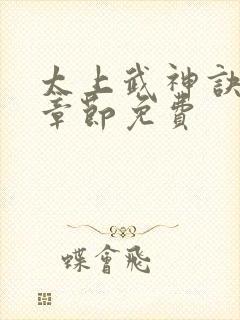 太上武神訣
章節免費
蝶會飛